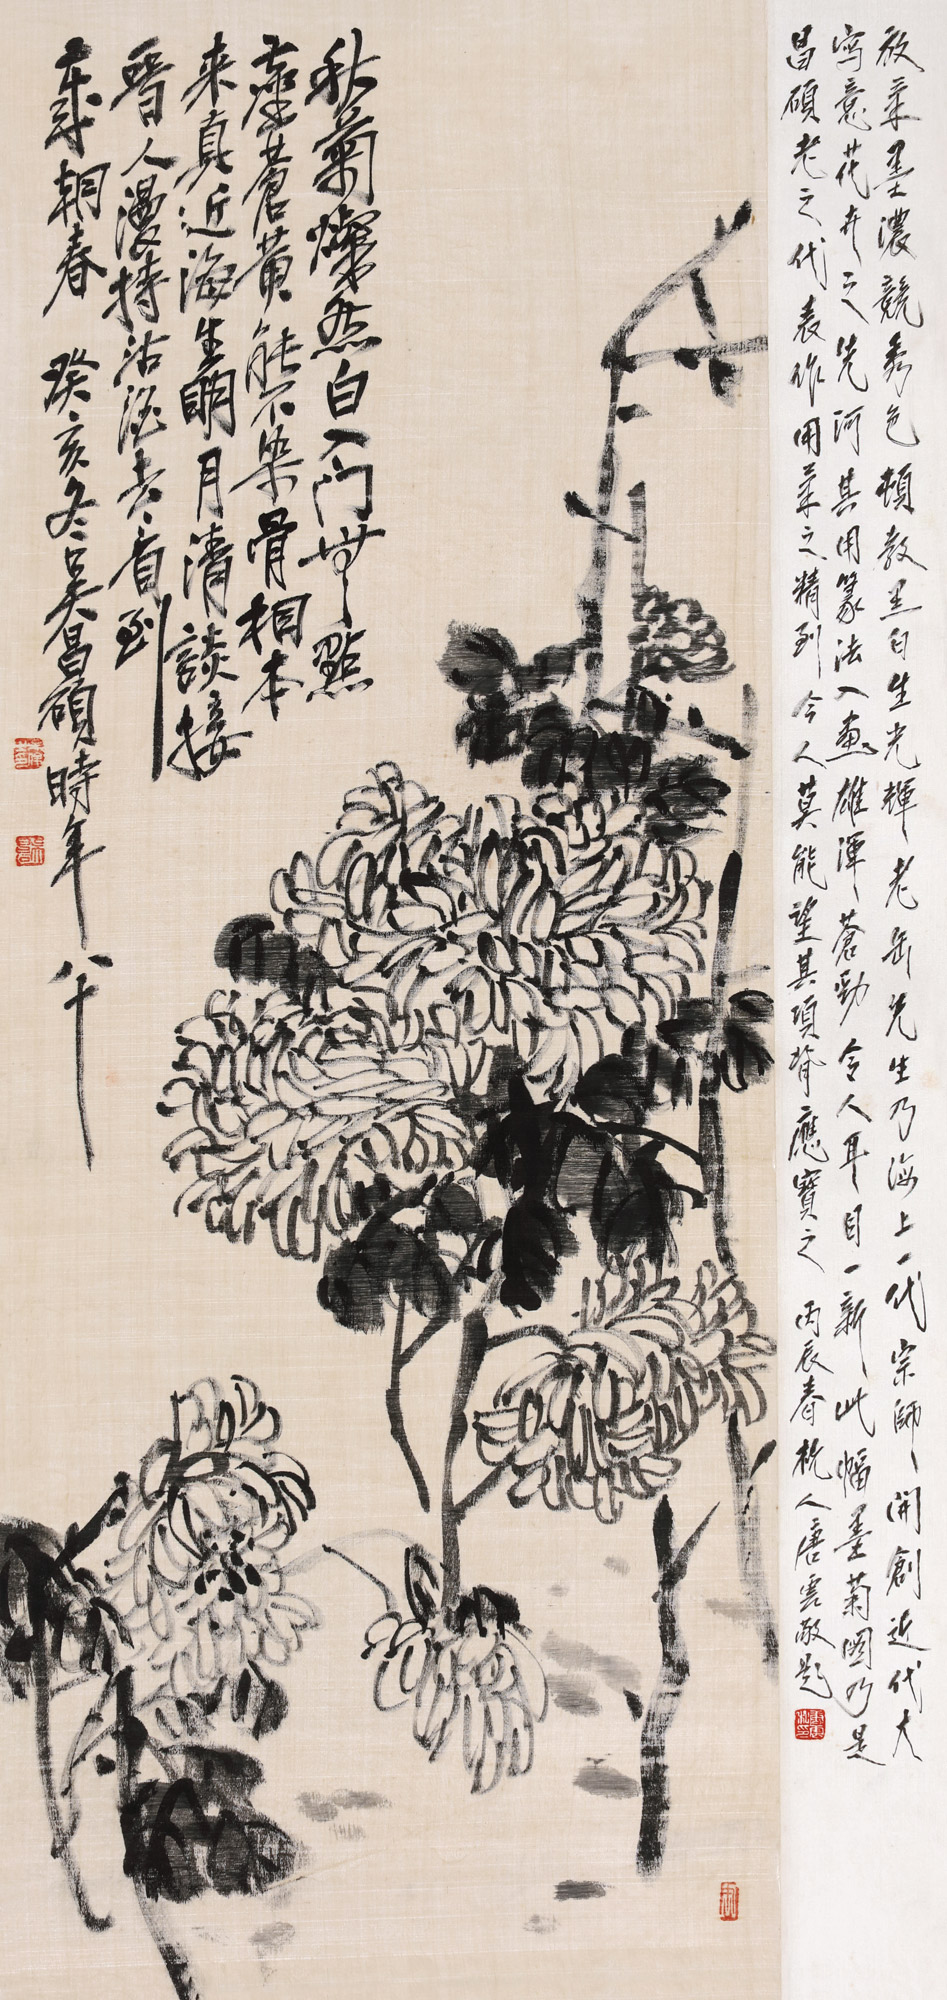 放筆墨濃競秀色頓教黑白生光輝老缶先生乃海上一代宗師開創近代大
寫意花卉之先河其用篆法入畫雄渾蒼勁令人耳目一新此幅墨菊圖乃是
昌碩老之代表作用筆之精到今人莫能望其項背應寶之 丙辰春杭人唐雲敬題
秋菊燦然白入門無點
塵蒼黃能不染骨相本
来真近海生明月清談接
晉人漫持沽酒去看到
歲朝春 癸亥冬吳昌碩時年八十